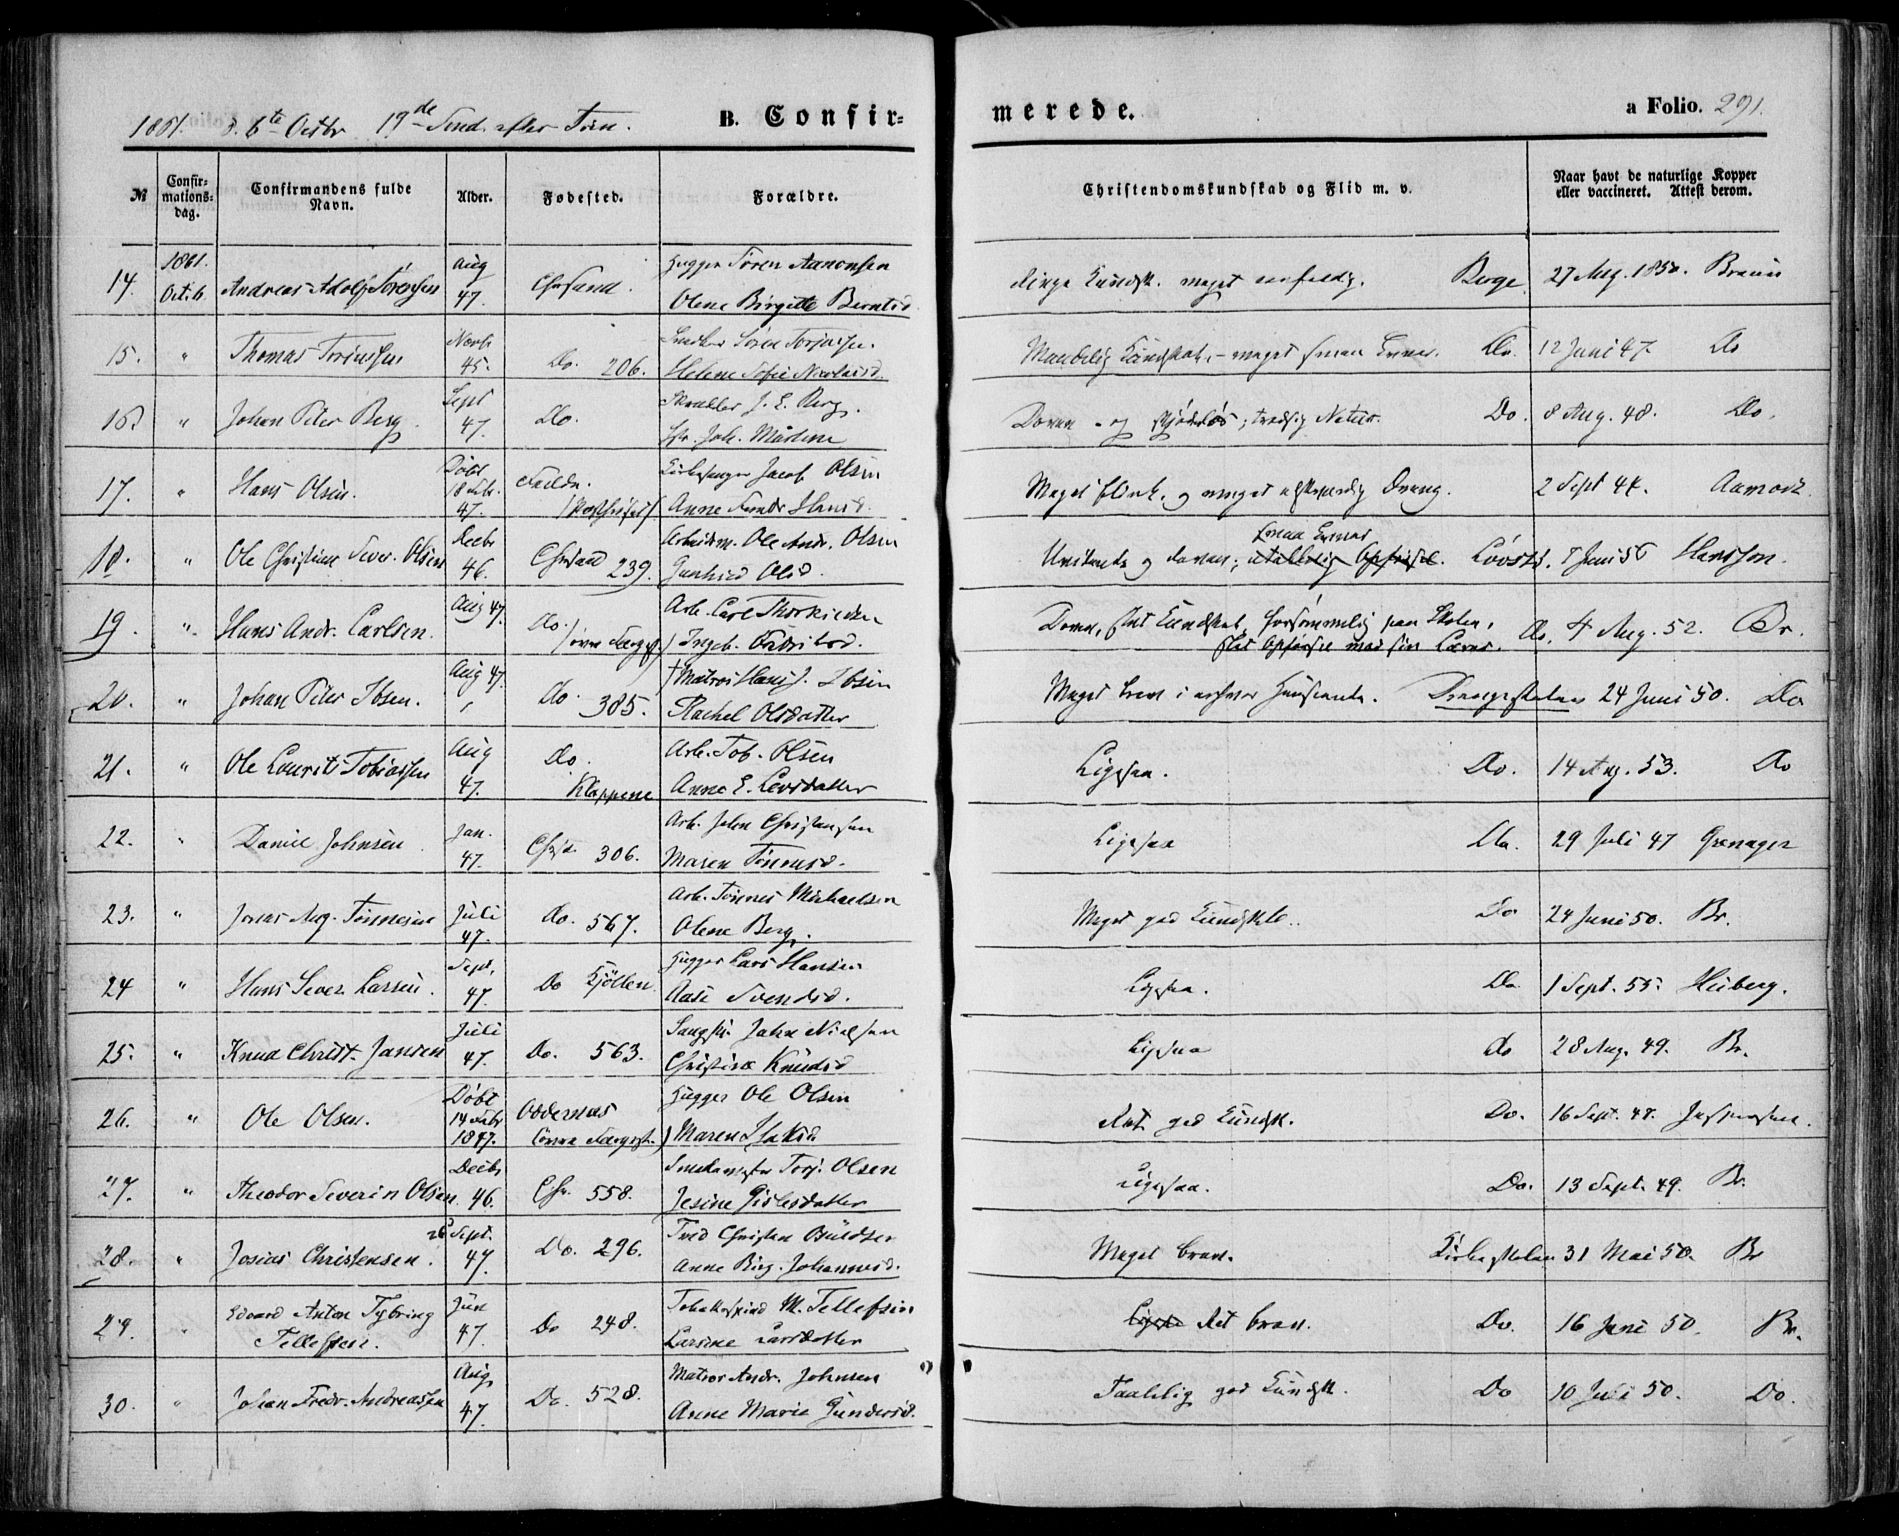 1861. d. 6te Octbr 19de Sønd. efter Trin.
B. Confirmerede.
a Folio. 291.
№ Confirmationsdag. Confirmandens fulde Navn. Alder. Fødested. Forældre. Christendomskundskab og Flid m. v. Naar havt de naturlige Kopper eller vaccineret. Attest derom.
14. 1861. Oct. 6. Andreas Adolf Sørensen Aug 47. Chrsand. Hugger Søren Aanonsen
Olene Birgitte Berntsd. Ringe Kundsk. meget eenfoldig. Berge. 27 Aug. 1850. Braun
15. " Thomas Sørenssen Novbr 45. Do. 206. Snedker Søren Torjussen.
Helene Sofie Nicolaisd. Maadelig Kundskab, - meget smaa Evner. Do. 12 Juni 47. Do
16. " Johan Peter Berg. Sept 47. Do. J. E. Berg.
Joh. Martine Doven - og skjødesløs; trodsig Natur. Do. 8 Aug. 48. Do.
17. " Hans Olsen. Døbt 18 Febr. 47. Kirkesanger Jacob Olsen
Anne Hansd. Meget flink og meget elskværdig Dreng. 2 Sept 47. Aamodt
18. " Ole Christian Sever. Olsen Decbr 46. Chrsand 239. Arbeidsm. Ole Andr. Olsen
Gunhild Olsd. og doven; smaa Evner Opførsel. Løvold. 7 Juni 56 Hansson.
19. " Hans Andr. Carlsen. Aug 47. Do. Arb. Carl Thorkildsen
Ingeb. Doven, slet Kundskab, forsømmelig paa Skolen,
slet Opførsel mod sin Lærer. Do. 4 Aug. 52. Br.
20. " Johan Peter Ibsen. Aug 47. Do. 385. † Matros Hans J. Ibsen
Rachel Olsdatter Meget brav i enhver Henseende. Drengeskolen 24 Juni 50. Do
21. " Ole Laurits Tobiassen Aug 47. Do. Klappene Arb. Tob. Olsen
Anne E. Larsdatter Ligesaa. Do. 14 Aug. 53. Do
22. " Daniel Johnsen Jan. 47. Chrs. 306. Arb. John Christensen
Maren Tønnesd. Ligesaa Do. 29 Juli 47 Grønager
23. " Jonas Aug. Tønnesen Juli 47. Do. 567. Arb. Tønnes Michaelsen
Olene Berg. Meget god Kundskab. Do 24 Juni 50. Br.
24 " Hans Sever. Larsen. Sept. 47. Do Kjøllen. Hugger Lars Hansen
Aase Svendsd. Ligesaa. Do. 1 Sept. 55. Heiberg.
25. " Knud Christ. Jansen Juli 47. Do. 563. John Nielsen
Christine Knudsd Ligesaa Do 28 Aug. 49. Br.
26. " Ole Olsen. Døbt 14 Febr 1847. Oddernes Hugger Ole Olsen
Maren Isaksd Ret god Kundsk. Do. 16 Sept. 47. Jespersen.
27. " Theodor Severin Olsen. Decbr 46. Chr. 558. Torj. Olsen
Jesine Gislesdatter Ligesaa. Do. 13 Sept. 49. Br.
28. " Josias Christensen. 26 Sept. 47. Do. 296. Christen
Anne Birg. Johannesd. Meget brav. Kirkeskolen 31 Mai 50. Br
29. " Edvard Anton Tybring
Tellefsen. Jun 47. Do 248. M. Tellefsen
Larsine Larsdatter Ligesaa Ret brav. Do. 16 Juni 50. Br.
30. " Johan Fredr. Andreassen Aug. 47. Do. 528. Matros Andr. Johnsen
Anne Marie Gundersd. Taalelig god Kundsk. Do 10 Juli 50. Do.